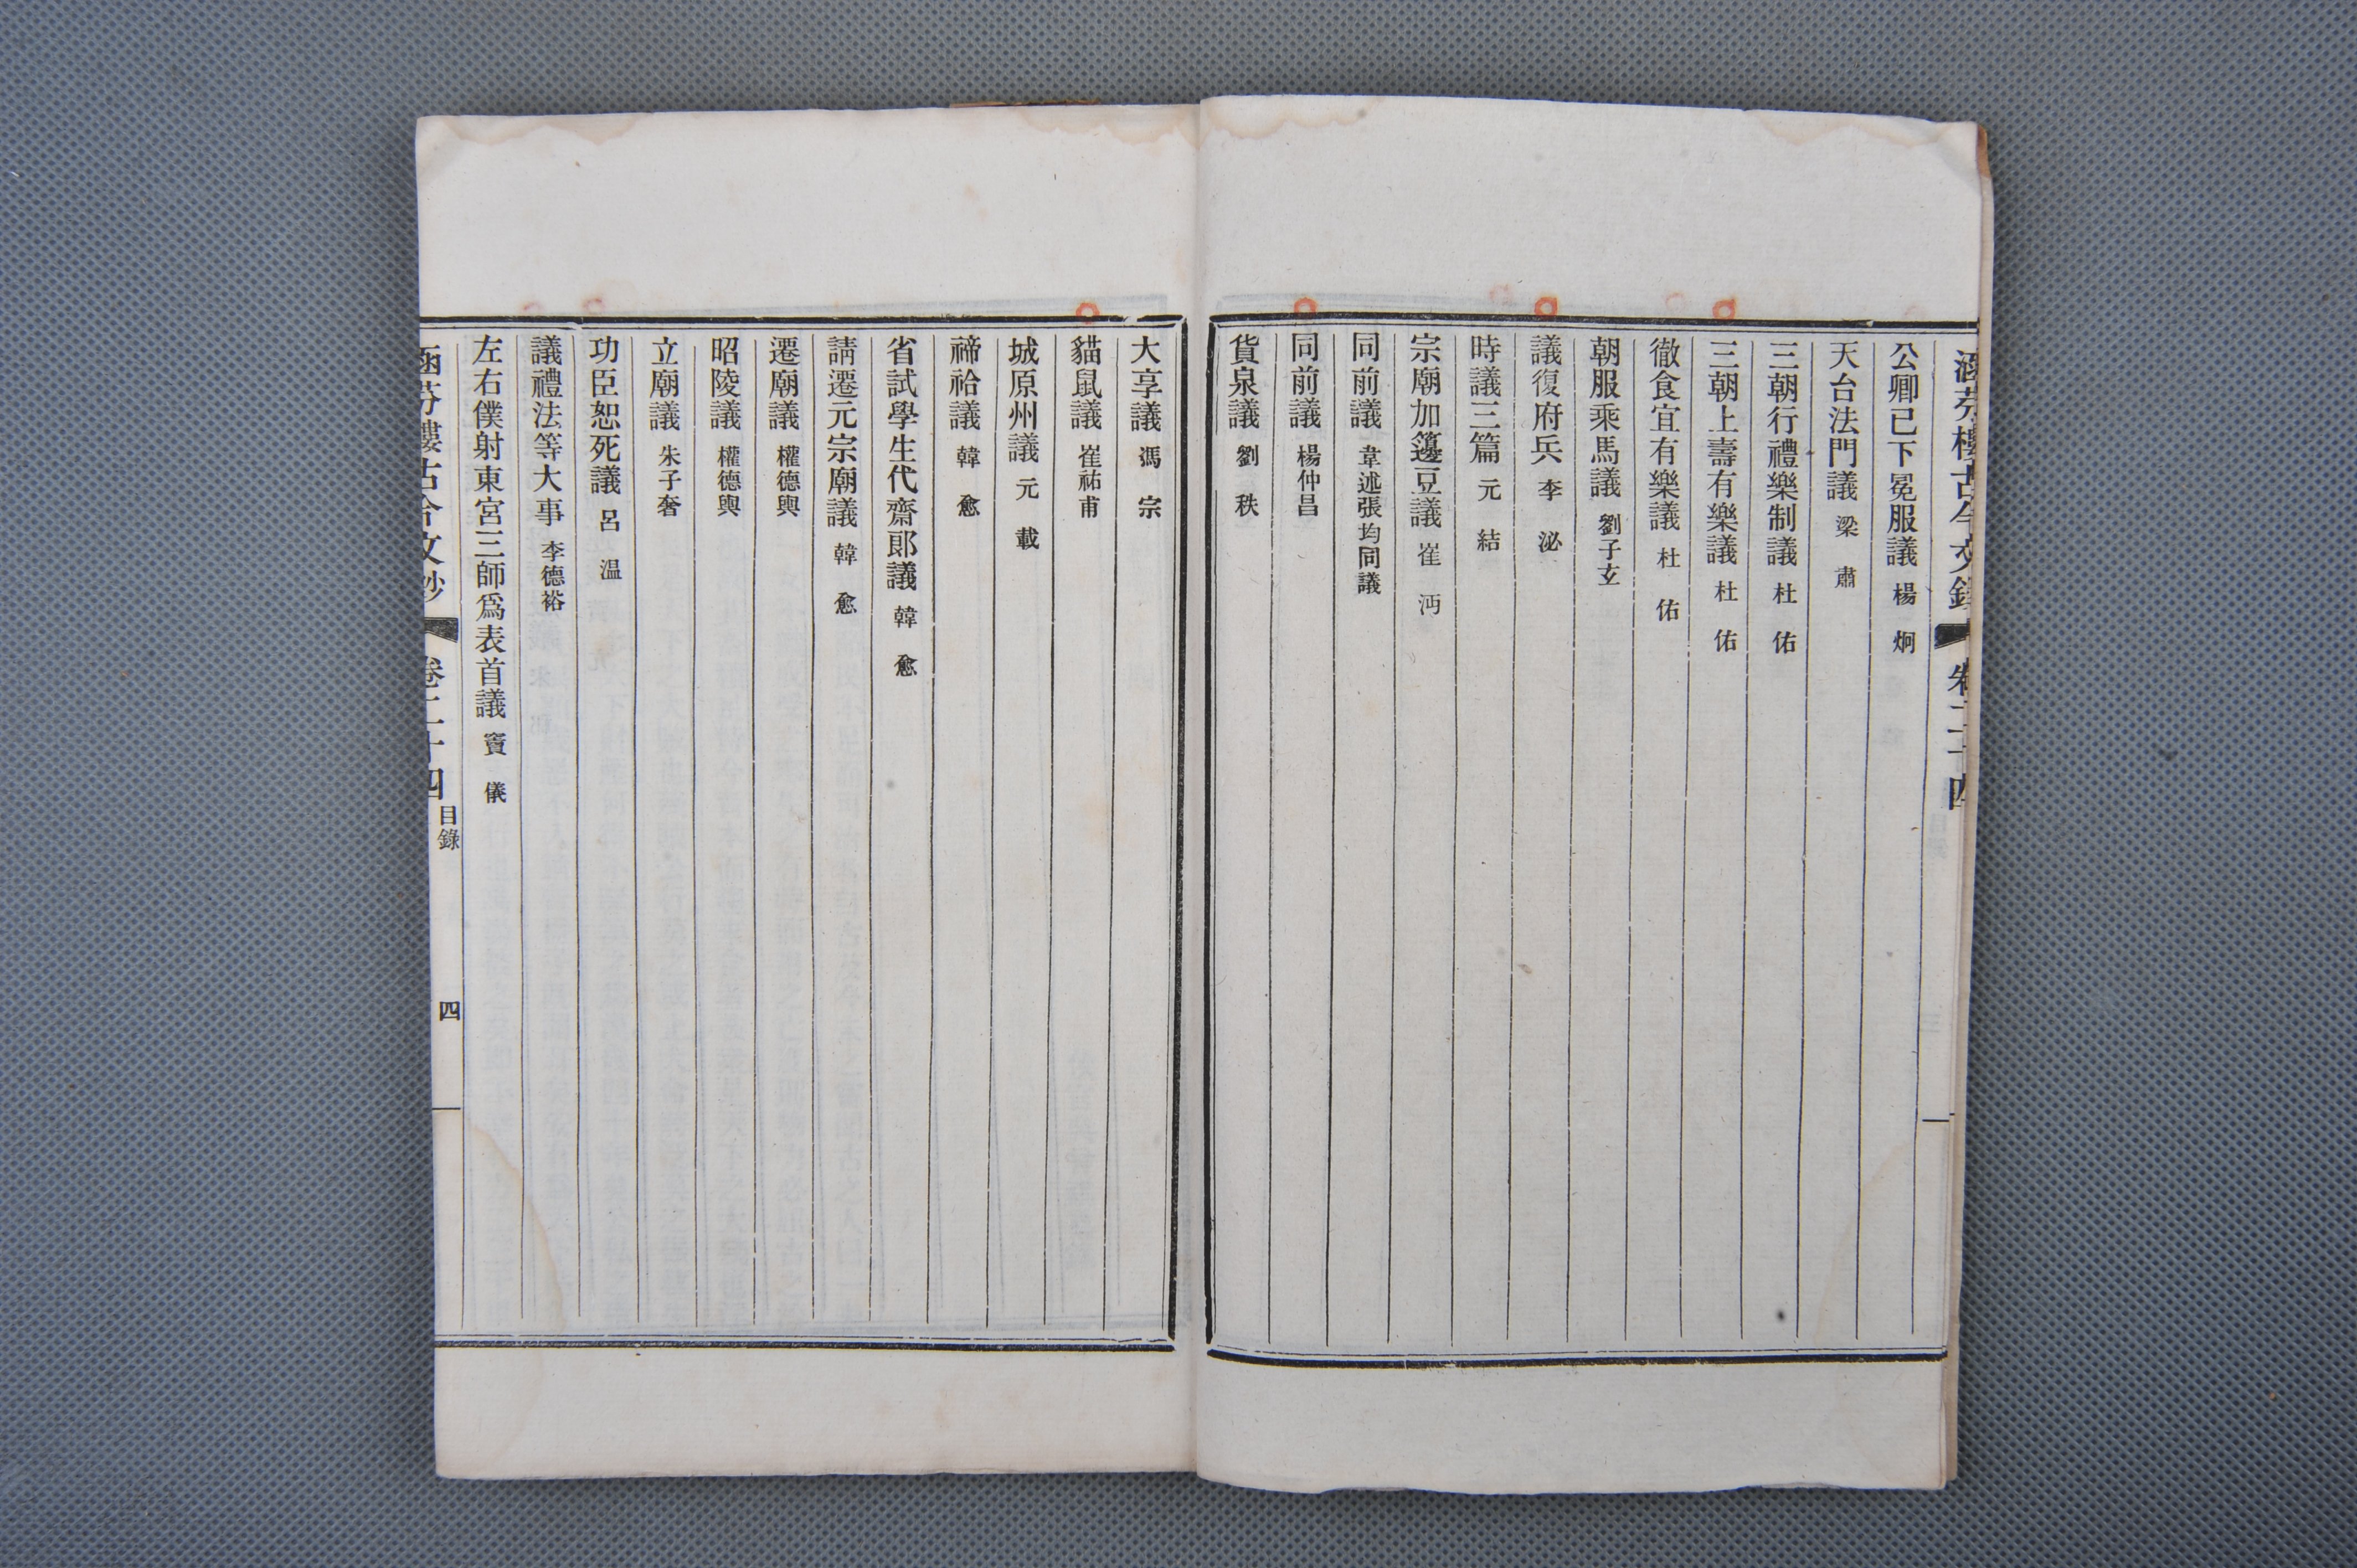 涵芬樓古今文鈔 卷二十四
公卿已下冕服議 楊 炯
天台法門議 梁 肅
三朝行禮樂制議 杜 佑
三朝上壽有樂議 杜 佑
徹食宜有樂議 杜 佑
朝服乘馬議 劉子玄
議復府兵 李 泌
時議三篇 元 結
宗廟加籩豆議 崔 沔
同前議 韋述張均同議
同前議 楊仲昌
貨泉議 劉 秩
大享議 馮 宗
貓鼠議 崔祐甫
城原州議 元 載
禘祫議 韓 愈
省試學生代齋郎議 韓 愈
請遷元宗廟議 韓 愈
遷廟議 權德輿
昭陵議 權德輿
立廟議 朱子奢
功臣恕死議 呂 温
議禮法等大事 李德裕
左右僕射東宮三師爲表首議 竇 儀
涵芬樓古今文鈔 卷二十四 目錄 四